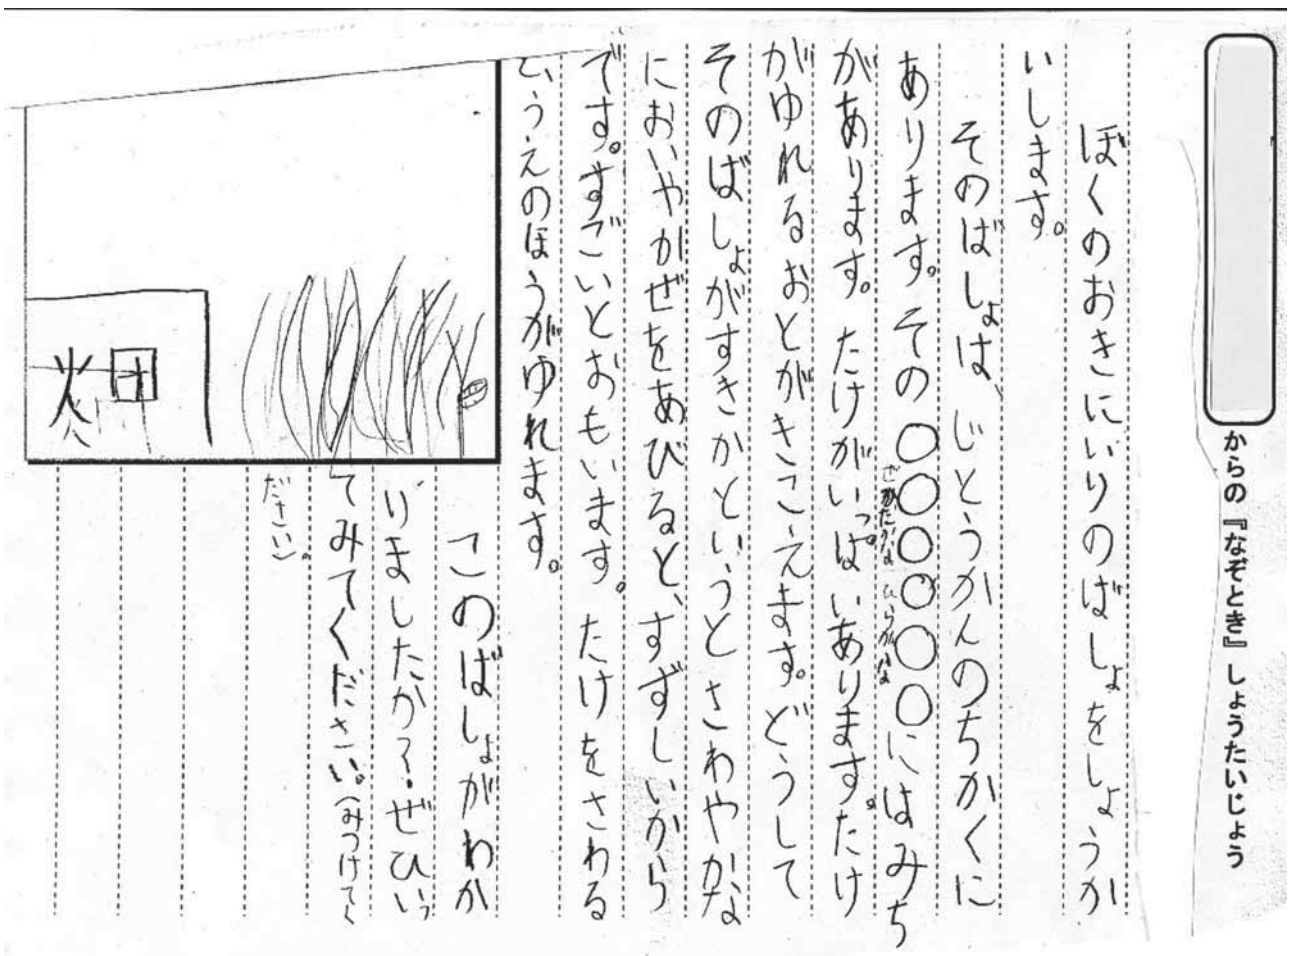 からの『なぞとき』しょうたいじょう
ぼくのおきにいりのばしょをしょうか
いします。
そのばしょは、じとうかんのちかくに
あります。その○○○○○○にはみち
ひらがな
があります。たけがいっぱいあります。たけ
がゆれるおとがきこえます。どうして
そのばしょがすきかというとさわやかな
においやかぜをあびると、すずしいから
です。すごいとおもいます。たけをさわる
と、うえのほうがゆれます。
このばしょがわか
りましたか？ぜひいっ
てみてください。(みつけてく
ださい)。
畑